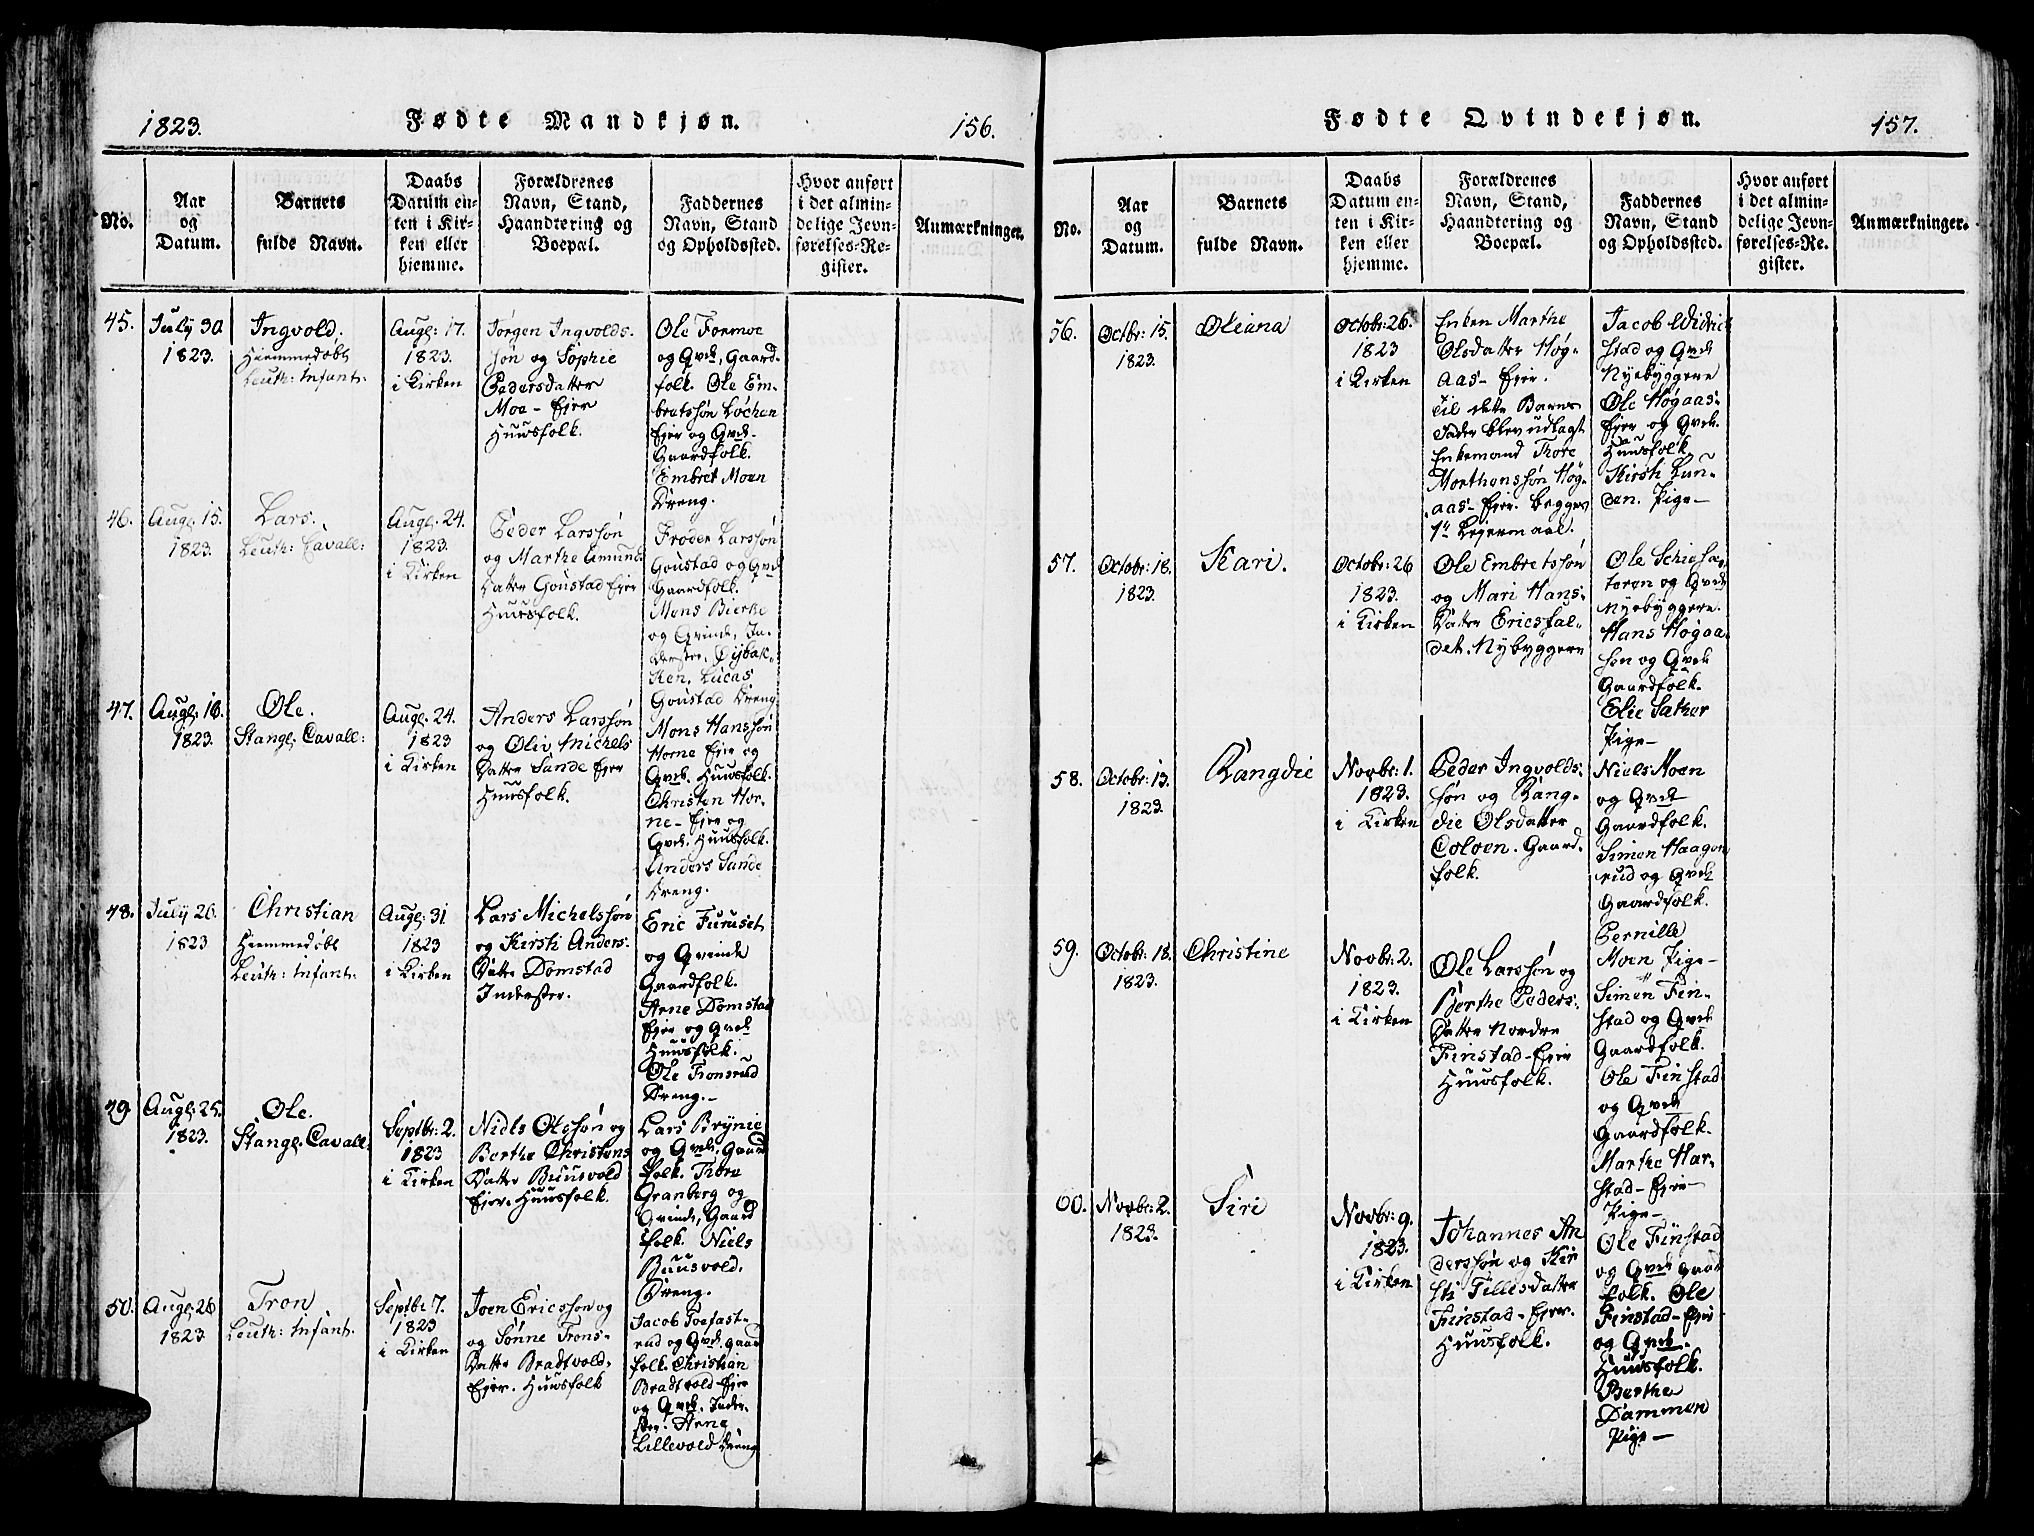 1823.
Fødte Mandkjøn.
156.
No.
Aar
og
Datum.
Barnets
fulde Navn.
Daabs
Datum en-
ten i Kir-
ken eller
hjemme.
Forældrenes
Navn, Stand,
Haandtering og
Boepæl.
Faddernes
Navn, Stand
og Opholdssted.
Hvor anført
i det almin-
delige Jevn-
førelses-Re-
gister.
Anmærkninger.
45.
July 30
1823.
Ingvold.
Hiemmedøbt
Leuth: Infant:
Augl: 17.
1823.
i Kirken
Jørgen Ingvolds-
søn og Sophie
Pedersdatter
Moe - Eier
Huusfolk.
Ole Formoe
og Qvde, Gaard-
folk. Ole Em-
bretssøn Løchen
Eier og Qvde-
Gaardfolk.
Embret Moen
Dreng.
46.
Augl: 15.
1823.
Lars.
Leuth: Cavall:
Augl: 24.
1823.
i Kirken
Peder Larssøn
og Marthe Amunds
Datter Goustad Eier
Huusfolk.
Frøder Larssøn
Goustad og Qvde
Gaardfolk.
Mons Bierke
og Qvinde, In-
derster,
ken, Lucas
Goustad Dreng
47.
Augl: 18.
1823.
Ole.
Stangl: Cavall:
Augl: 24.
1823
i Kirken
Anders Larssøn
og Oliv Michels
Datter Sande Eier
Huusfolk.
Mons Hanssøn
Horne Eier og
Qvde. Huusfolk.
Christen Hor-
ne - Eier og
Qvde. Huusfolk.
Anders Sande
Dreng.
48.
July 26.
1823
Christian
Hiemmedøbt
Leuth: Infant:
Augl: 31
1823
i Kirken
Lars Michelssøn
og Kirsti Anders-
Datter Domstad
Inderster.
Eric Furuset
og Qvinde
Gaardfolk.
Arne Domstad
Eier og Qvde
Huusfolk.
Ole Tronsrud
Dreng.-
49
Augl: 25.
1823.
Ole.
Stangl: Cavall:
Septbr: 2.
1823
i Kirken
Niels Olssøn og
Berthe Christens
Datter Buusvold
Eier. Huusfolk.
Lars Brynie
og Qvde, Gaard
folk. Thore
Granberg og
Qvinde, Gaard
folk. Niels
Buusvold,
Dreng.
50.
Augl: 26
1823
Tron
Leuth: Infant:
Septbr 7.
1823
i Kirken
Joen Ericssøn og
og Sønne Trons-
Datter Bradtvold,
Eier. Huusfolk
Jacob Toefast-
rud og Qvde. Gaard
folk. Christian
Bradtvold Eier
og Qvde. Inder-
ster. Arne
Lillevold Dreng
Fødte Qvindekjøn.
157.
No.
Aar
og
Datum.
Barnets
fulde Navn.
Daabs
Datum en-
ten i Kir-
ken eller
hjemme.
Forældrenes
Navn, Stand,
Haandtering og
Boepæl.
Faddernes
Navn, Stand
og Opholdssted.
Hvor anført
i det almin-
delige Jevn-
førelses-Re-
gister.
Anmærkninger.
56.
Octbr: 15.
1823.
Oleana
Octobr: 26.
1823
i Kirken
Enken Marthe
Olsdatter Høg-
aas - Eier.
Til dette Barns
Fader blev udlagt
Enkemand Thore
Morthenssøn Høg-
aas - Eier. begges
1te Leiermaal.
Jacob Didrich
stad og Qvde
Nyebyggere
Ole Høgaas-
Eier og Qvde.
Huusfolk.
Kirsti Lun-
den. Pige-
57.
Octobr: 18.
1823.
Kari.
Octobr: 26
1823.
i Kirken
Ole Embretssøn
og Mari Hans-
Datter Ericsfal-
det. Nybyggere
Ole
toren og Qvde
Nyebyggere.
Hans Høgaa-
sen og Qvde
Gaardfolk.
Elie Sather
Pige-
58.
Octobr: 13.
1823.
Rangdie
Novbr: 1.
1823.
i Kirken
Peder Ingvolds-
søn og Rang-
die Olsdatter
Colven. Gaard-
folk.
Niels Moen
og Qvde
Gaardfolk.
Simen Haagen
rud og Qvde
Gaardfolk.
Pernille
Moen Pige-
59.
Octobr: 18.
1823.
Christine
Novbr: 2.
1823.
i Kirken
Ole Larssøn og
Berthe Peders-
Datter Nordre
Finstad - Eier
Huusfolk.
Simen Fin-
stad og Qvde
Gaardfolk.
Ole Finstad
og Qvde
Gaardfolk.
Marthe Har-
stad - Eier
Pige-
60.
Novbr: 2.
1823.
Siri
Novbr: 9.
1823.
i Kirken
Johannes An
derssøn og Kir
sti Tillesdatter
Finstad - Eier.
Huusfolk.
Ole Finstad
og Qvde Gaar
folk. Ole
Finstad - Eier
og Qvde.
Huusfolk.
Berthe
Dammen
Pige-